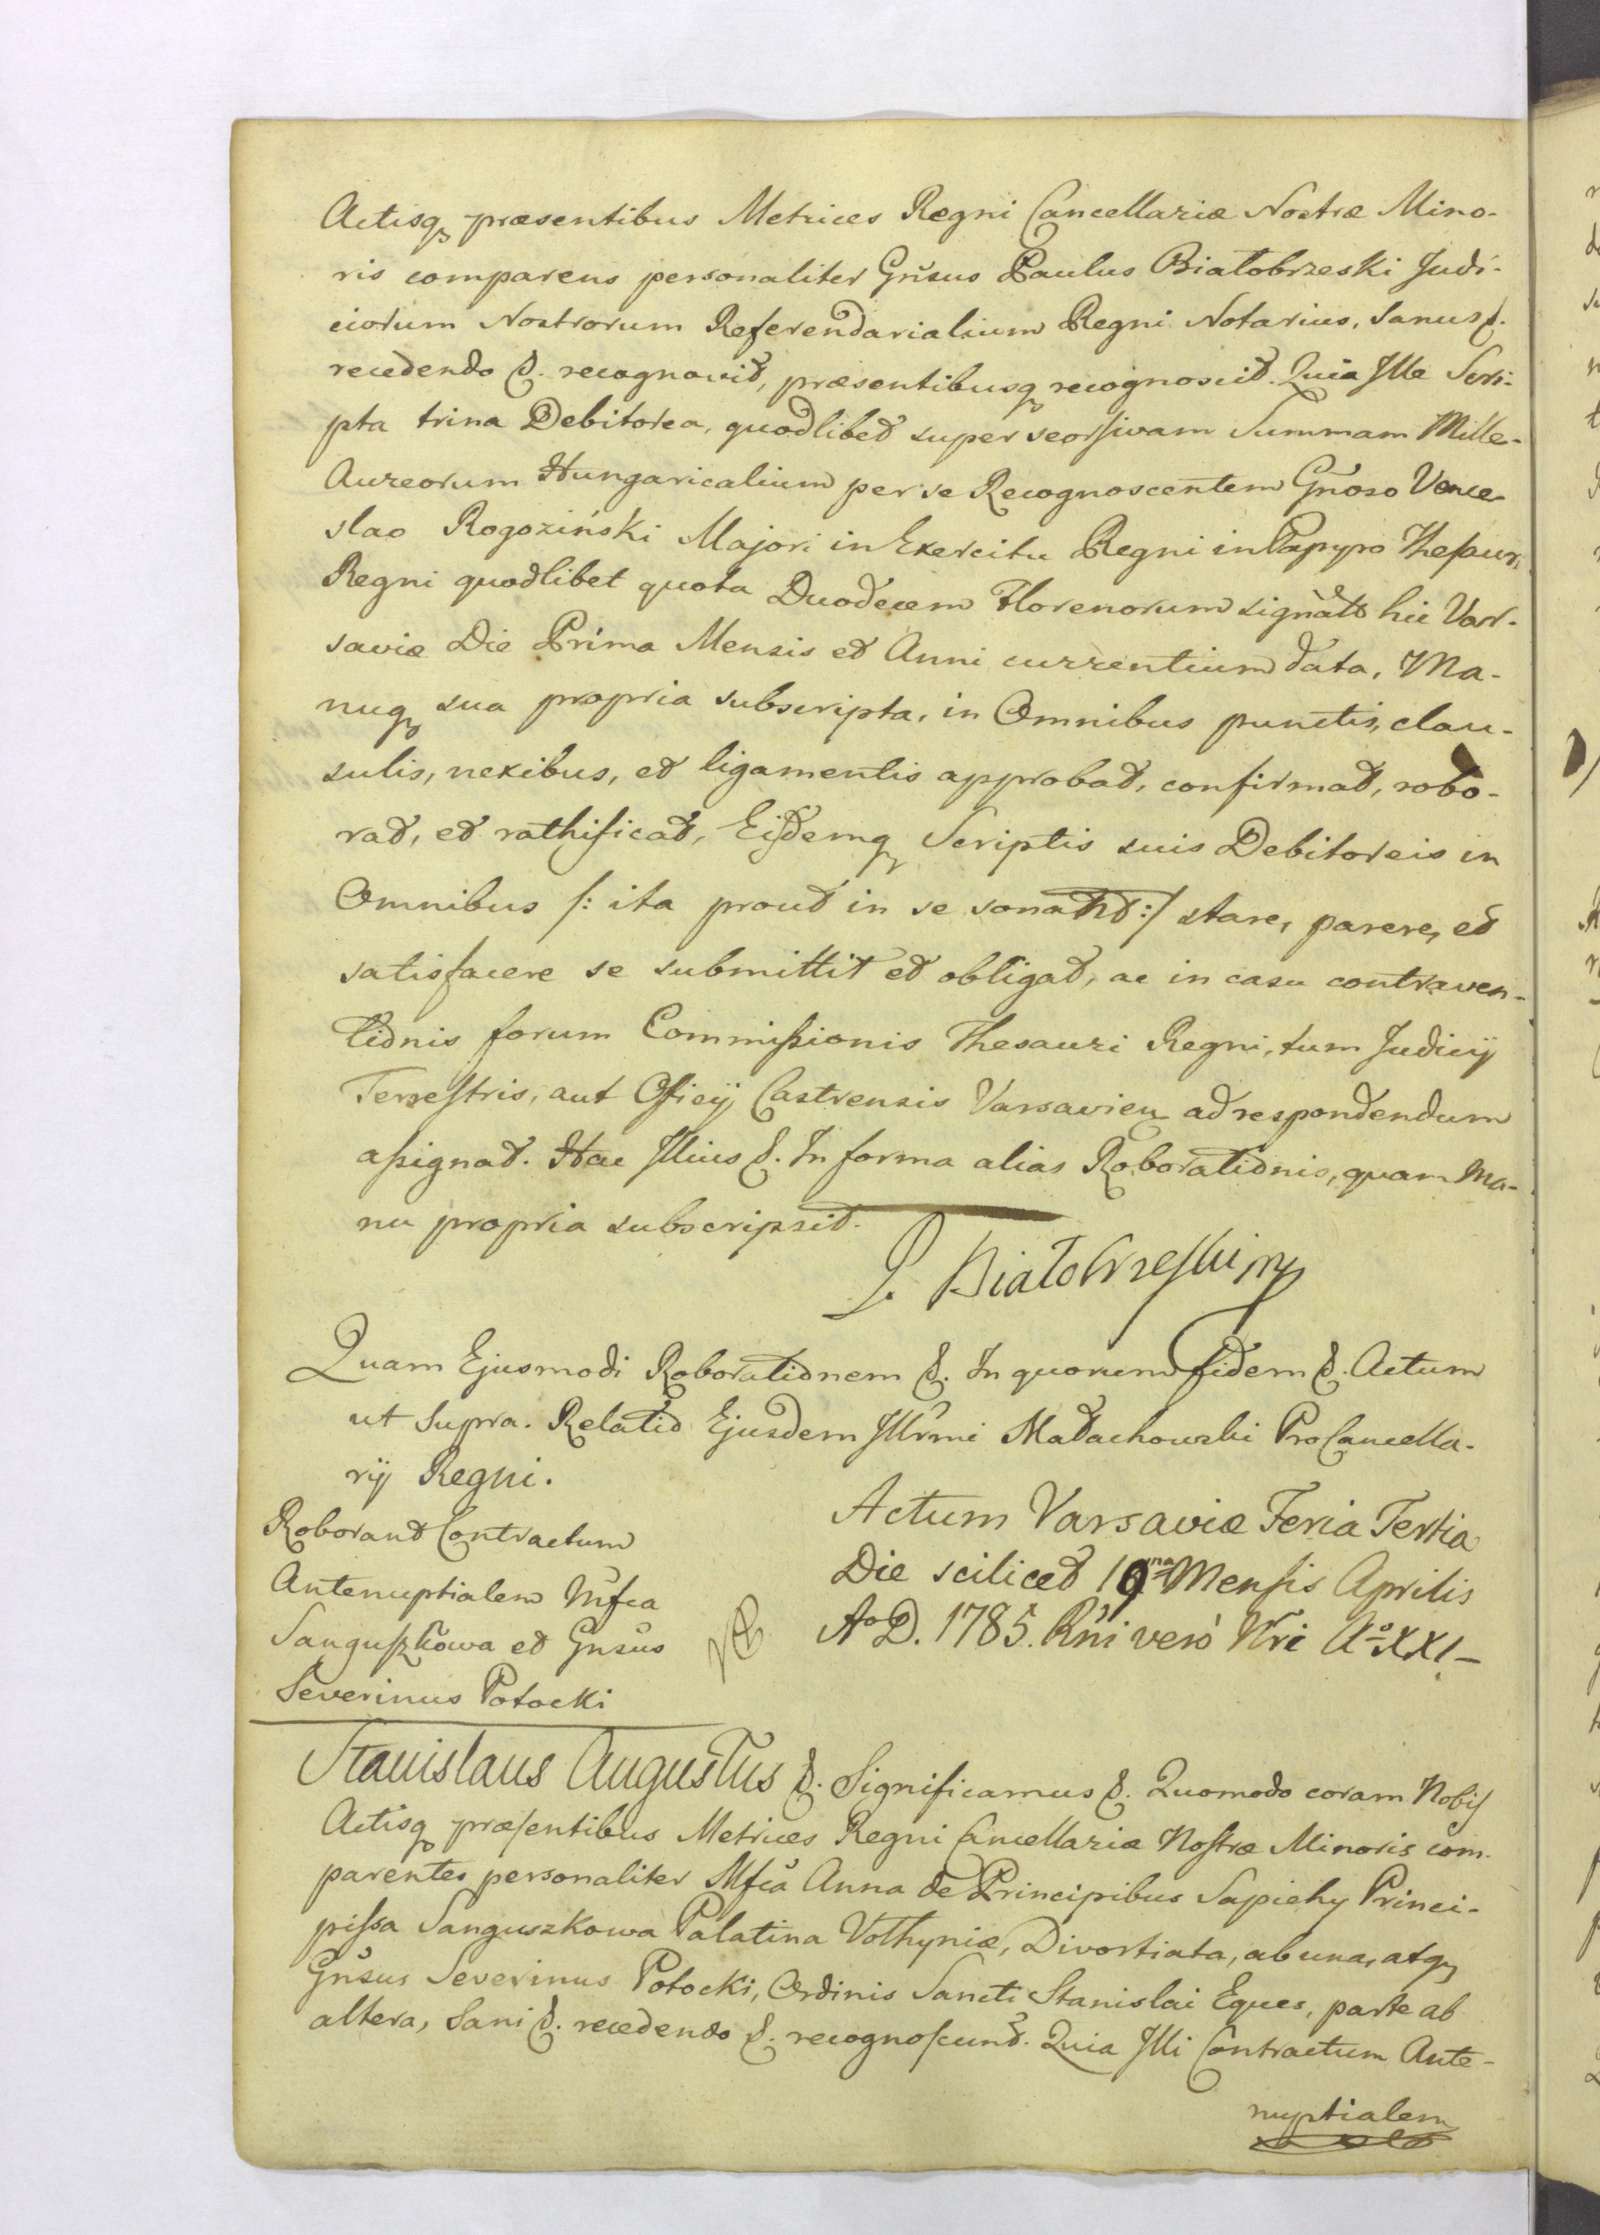 Actisq præsentibus Metrices Regni Cancellariæ Nostræ Mino-
ris comparens personaliter Gnsus Paulus Białobrzeski Judi-
ciorum Nostrorum Referendarialium Regni Notarius, Sanus &.
recedendo &. recognovit, præsentibusq recognoscit. Quia Ille Scri-
pta trina Debitorea, quodlibet super seorsivam Summam Mille
Aureorum Hungaricalium per se Recognoscentem Gnoso Vence-
slao Rogoziński Majori in Exercitu Regni in Papyro Thesaur:
Regni quodlibet quota Duodecem Florenorum signatt hic Var-
saviæ Die Prima Mensis et Anni currentium data, Ma-
nuq sua propria subscripta, in Omnibus punctis, clau-
sulis, nexibus, et ligamentis approbat, confirmat, robo-
rat, et rathificat, Eisdemq Scriptis suis Debitoreis in
Omnibus /: ita prout in se sonant :/ stare, parere, et
satisfacere se submittit et obligat, ac in casu contraven-
tionis forum Commissionis Thesauri Regni, tum Judicij
Terrestris, aut Officij Castrensis Varsavien ad respondendum
assignat. Hac Illius &. In forma alias Roborationis, quam Ma-
nu propria subscripsit.
P. Białobrzeski mp
Quam Ejusmodi Roborationem &. In quorum fidem &. Actum
ut Supra. Relatio Ejusdem Illrmi Małachowski ProCancella-
rij Regni.
Roborant Contractum
Antenuptialem Mfca
Sanguszkowa et Gnsus
Severinus Potocki
Actum Varsaviæ Feria Tertia
Die scilicet 19na Mensis Aprilis
Ao D. 1785. Rni vero Nri Ao XXI
Stanislaus Augustus &. Significamus &. Quomodo coram Nobis
Actisq præsentibus Metrices Regni Cancellariæ Nostræ Minoris com-
parentes personaliter Mfca Anna de Principibus Sapiehy Princi-
pissa Sanguszkowa Palatina Volhyniæ, Divortiata, ab una, atq
Gnsus Severinus Potocki, Ordinis Sancti Stanislai Eques, parte ab
altera, Sani &. recedendo &. recognoscunt. Quia Illi Contractum Ante-
nuptialem